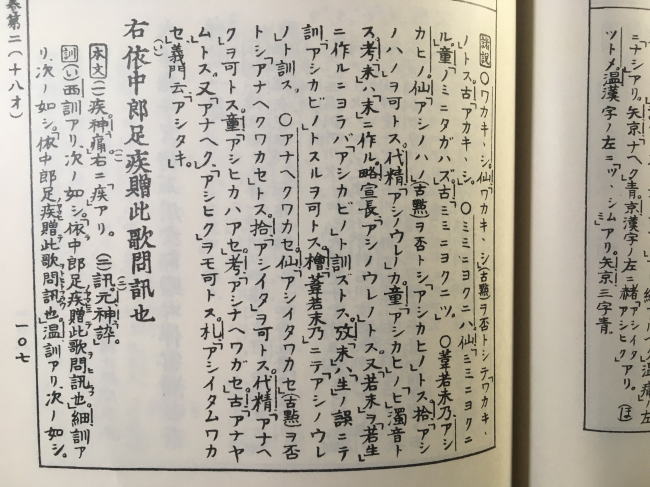 ニナシアリ。矢京「ナヘク」青。京漢字ノ左ニ赭「アシイタ
アシヒク」アリ。
ツトメ」温漢字ノ左ニ「ツヽシムアリ。矢京三字青。
諸説 〇ワカキ、シ。仙「ワカキ、シ」古點ヲ否トシテ「ワカキ、
ノトス。古「アカキ、シ。〇ミミニヨクニハ仙「ミミニヨクニ
ル。童「ノミニタガハズ」古「ミミニヨクニツ。〇葦若未乃「アシ
カヒノ」仙「アシノハノ」古點ヲ否トシ「アシカヒノ」トス。拾「アシ
ノハノヲ可トス。代精「アシノウレノカ」童「アシカヒノ」ヒ濁音ト
ス。考「未ハ末ニ作ル。略宣長「アシノウレノトス。又若未ヲ若生
ニ作ルニヨラバ「アシカビノト訓ズトス。攷未ハ生ノ誤ニテ
訓「アシカビノトスルヲ可トス。檜葦若末乃ニテ「アシノウレ
ノト訓ス。〇アナヘクワカセ仙「アシイタワカセ」古點ヲ否
トシ「アナヘクワカセトス。拾「アシイタヲ可トス。代精「アナヘ
クヲ可トス。童「アシヒカハアセ」考「アシナヘワガセ」古「アナヤ
ムトス。又「アナヘク、「アシヒクヲモ可トス。札「アシイタムワカ
セ」義門云「アシタキ。
右依中郎足疾贈此歌問訊也
本文(一)疾神「痛」右ニ「疾」アリ。(二)訊元神「誶」。
訓(い)西訓アリ、次ノ如シ。「依中郎足疾贈此歌問訊也」細訓ア
リ、次ノ如シ。「依中郎足疾贈此歌問訊也」温訓アリ、次ノ如シ。
卷第二(十八オ)
一〇七